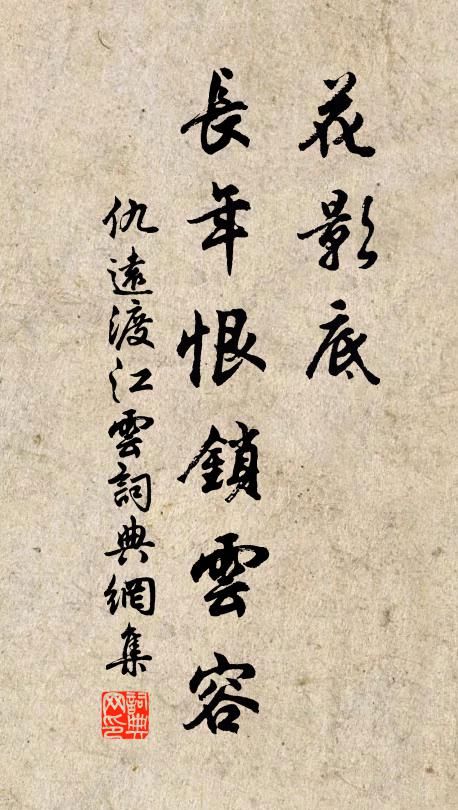 花影底
長年恨鎖雲容
仇遠渡江雲詞典網集
詞典网印